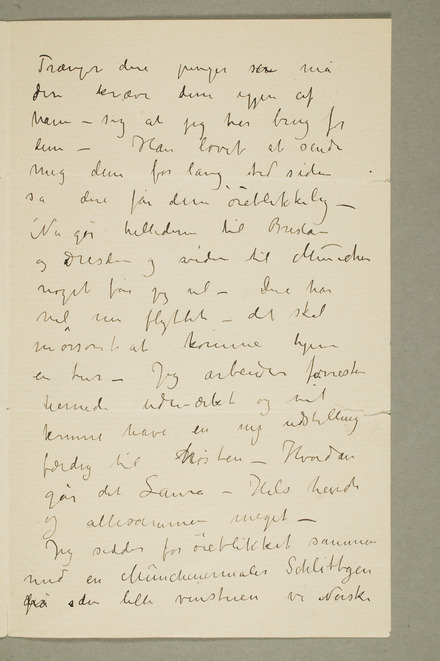 Trænger dere penger så må
dere kræve dem igjen af
ham – sig at jeg har brug for
dem – Han lovet at sende
meg dem for lang tid siden
så dere får dem öieblikkelig –
Nu går billederne til Breslau
og Dresden og siden til München
noget får jeg vel – Dere har
vel nu flyttet – det skal
morsomt at komme hjem
en tur – Jeg arbeider forresten
hernede udenrbet og vil
kunne have en ny udstilling
færdig til Hösten – Hvordan
går det Laura – Hils hende
og allesammen meget –
Jeg sidder for öieblikket sammen
med en Münchenermaler Schlittgen
på den lille vinstuen vi Norske